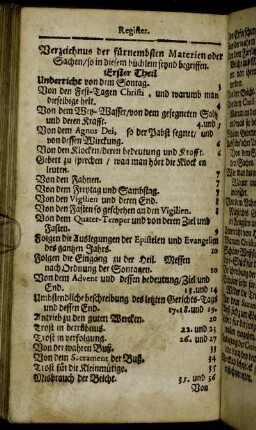 Register.
Verzeichnus der fürnembsten Materien oder
Sachen/so in disem büchlem seynd begriffen.
Erster Theil.
Underricht von dem Sonntag. 3
Von den Fest-Tagen Christi, und warumb man
dieselbige helt. 4
Von dem Wey-Wasser/von dem gesegneten Saltz
und deren Krafft. 4. und 5
Von dem Agnus Dei, so der Pabst segnet, und
von dessen Würckung. 6
Von den Klocken/deren bedeutung und Krafft. 6
Gebett zu sprechen/ wan man hört die Klock en
leuten. 7
Von den Fahnen. 7
Von dem Freytag und Sambstag. 7
Von den Vigilien und deren End. 8
Von den Fasten so geschehen an den Vigilien. 8
Von dem Quater-Temper und von deren Ziel und
Fasten. 9
Folgen die Auslegungen der Epistelen und Evangelien
des gantzen Jahrs. 10
Folgen die Eingäng zu der Heil. Messen
nach Ordnung der Sontagen. 10
Von dem Advent und dessen bedeutung/Ziel und
End. 13. und 14
Umbständliche beschreibung des letzten Gerichts-Tags
und dessen End. 17. 18. und 19.
Antrieb zu den guten Wercken. 20
Trost in betrübnus. 22. und 23
Trost in verfolgung. 26. und 27
Von der wahren Buß. 33
Von dem Sacrament der Buß. 34
Trost für die Kleinmütige. 35
Misbrauch der Beicht. 35. und 36
Von